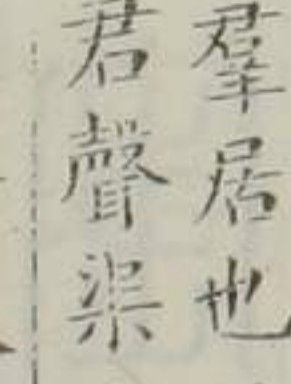 羣居也
君聲渠